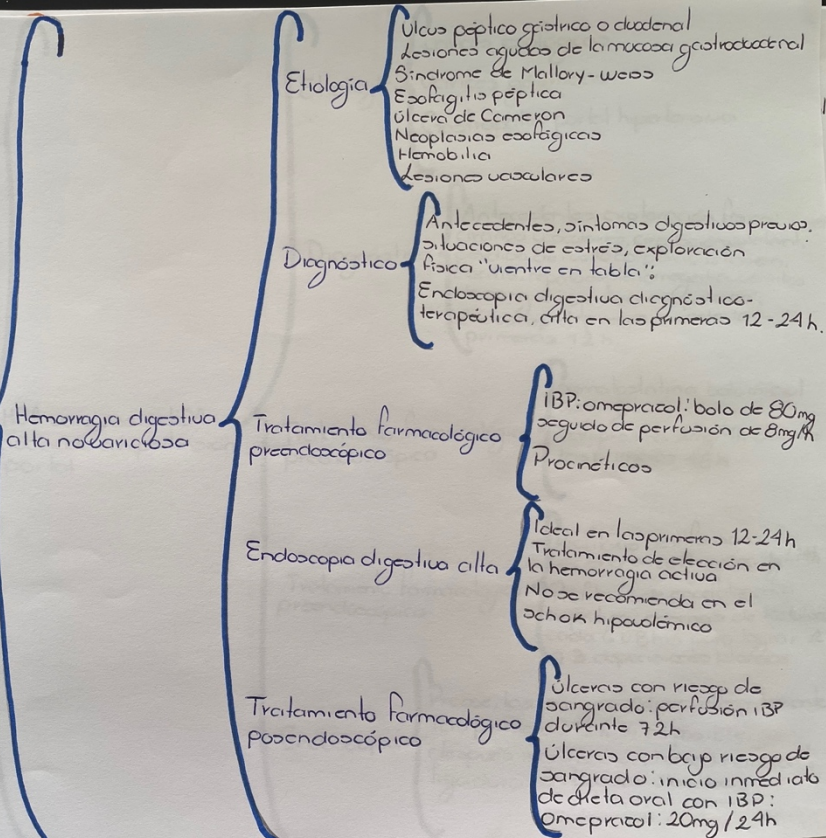 Hemorragia digestiva
alta no variciosa
Etiología
Ulcus péptico gástrico o duodenal
Lesiones agudas de la mucosa gastroduodenal
Síndrome de Mallory-weiss
Esofagitis péptica
Úlcera de Cameron
Neoplasias esofágicas
Hemobilia
Lesiones vasculares
Diagnóstico
Antecedentes, síntomas digestivos previos,
situaciones de estrés, exploración
física "vientre en tabla".
Endoscopia digestiva diagnóstico-
terapéutica, alta en las primeras 12-24h.
Tratamiento farmacológico
preendoscópico
IBP: omeprazol: bolo de 80mg
seguido de perfusión de 8mg/h
Procinéticos
Endoscopia digestiva alta
Ideal en las primeras 12-24h
Tratamiento de elección en
la hemorragia activa
No se recomienda en el
schok hipovolémico
Tratamiento farmacológico
posendoscópico
Úlceras con riesgo de
sangrado: perfusión IBP
durante 72h
Úlceras con bajo riesgo de
sangrado: inicio inmediato
de dieta oral con IBP:
Omeprazol: 20mg/24h